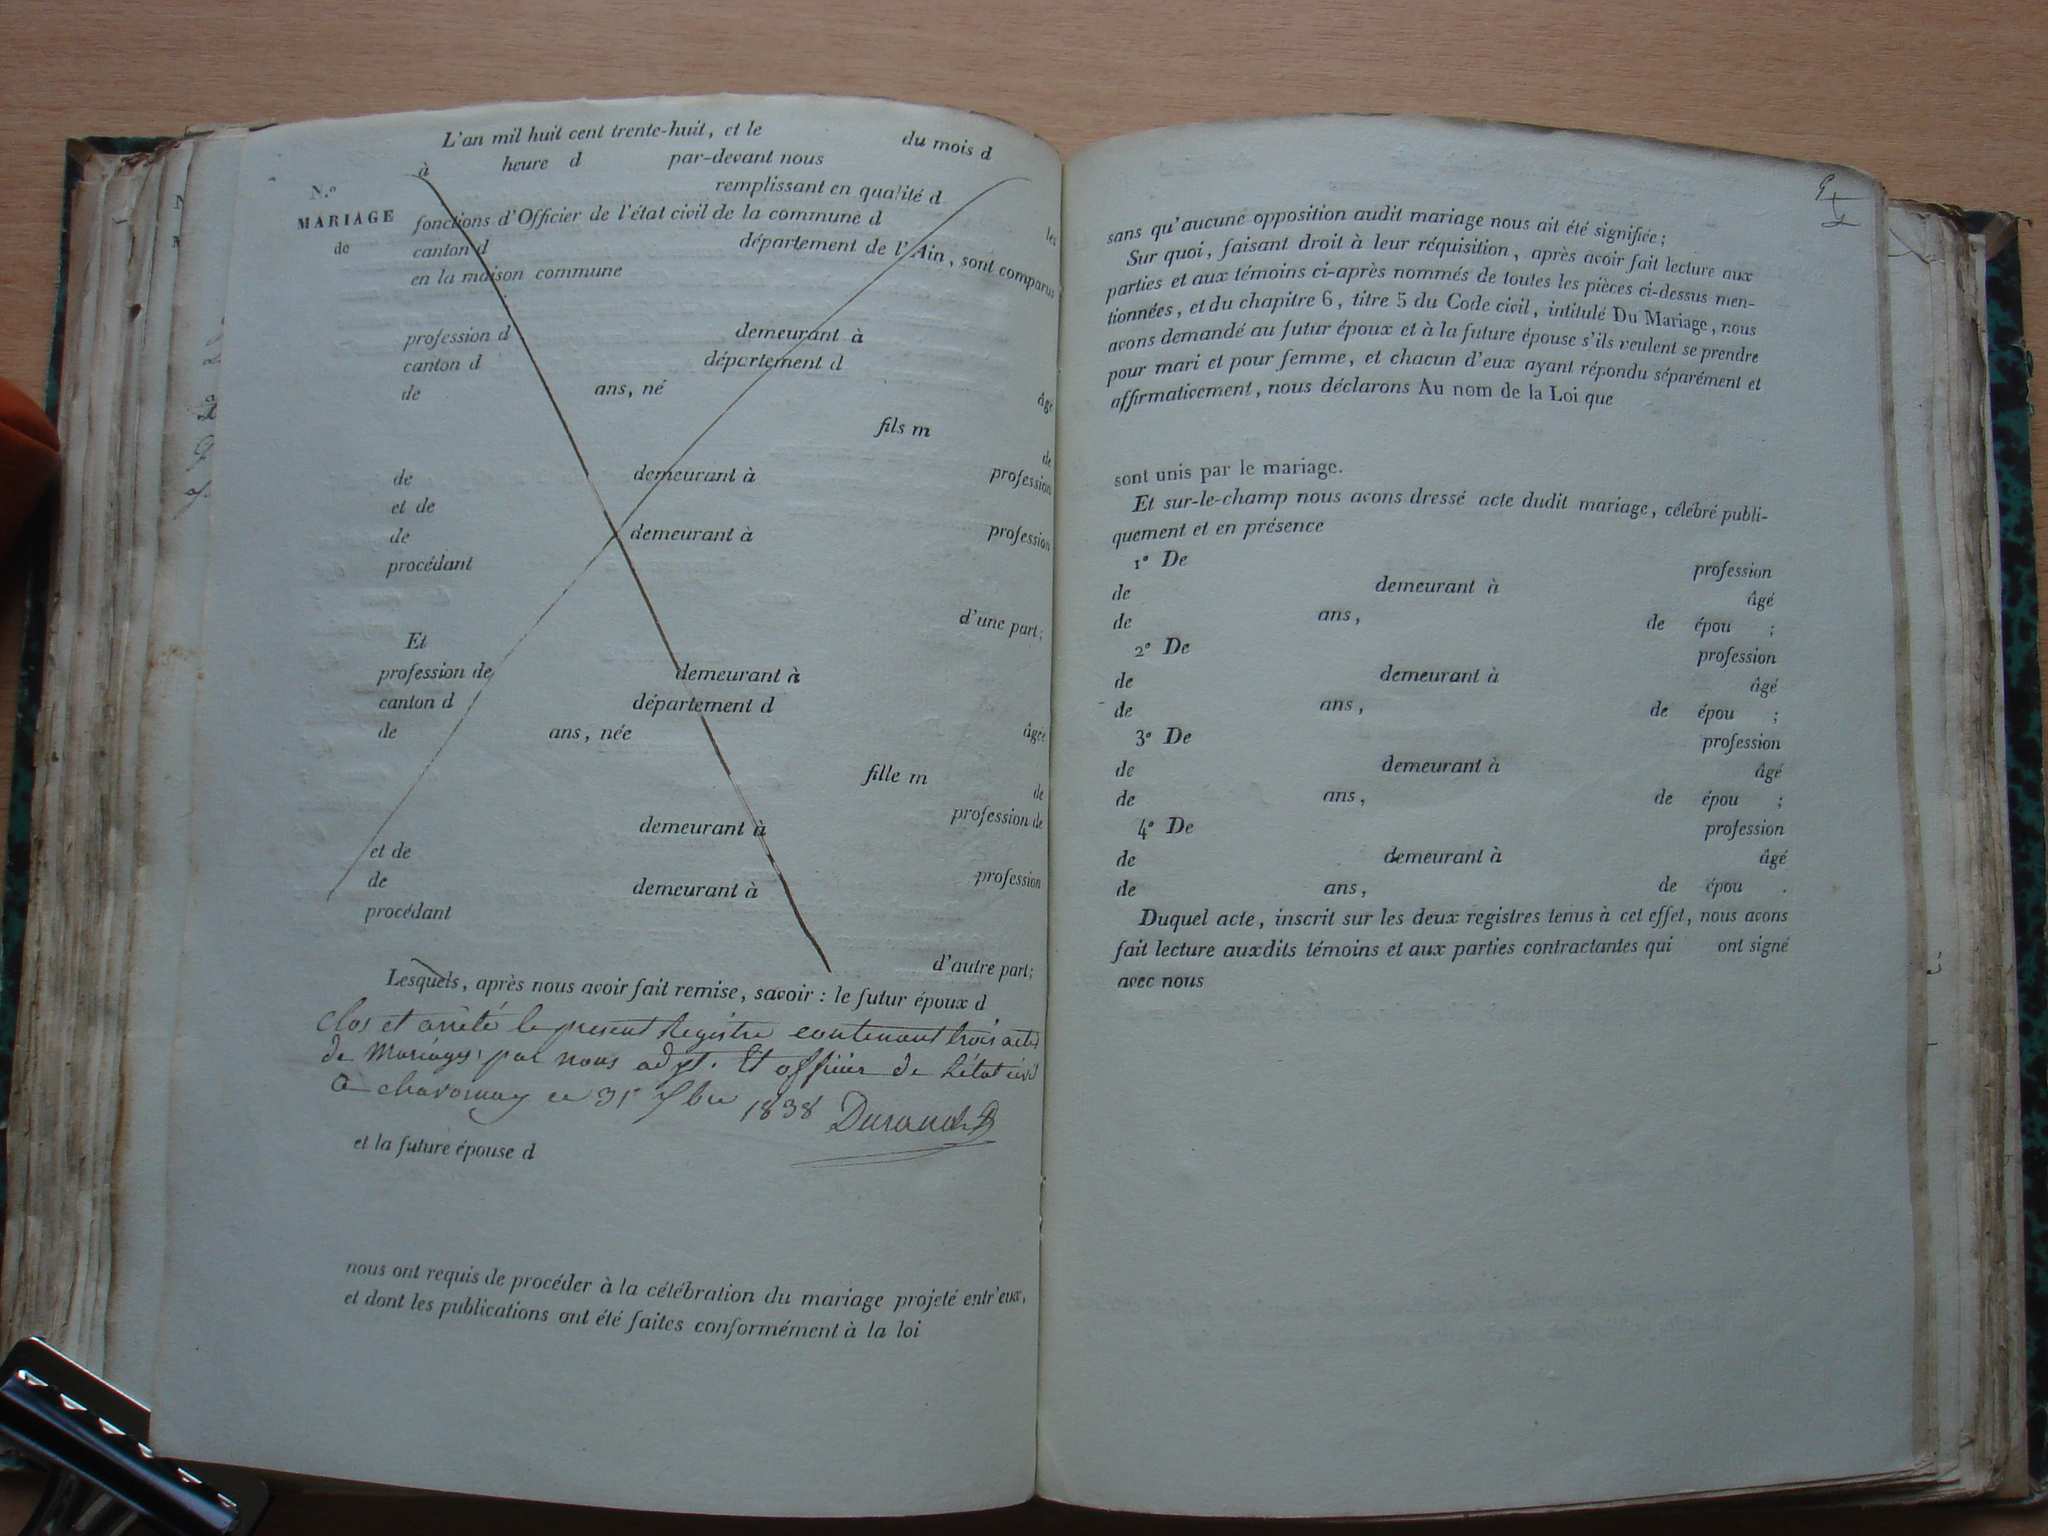 L'an mil huit cent trente-huit, et le du mois d
à heure d par-devant nous
N.º remplissant en qualité d les
MARIAGE fonctions d'Officier de l'état civil de la commune d
de canton d département de l'Ain, sont comparus
en la maison commune
profession d demeurant à
canton d département d âgé
de ans, né
fils m de
profession
de demeurant à
et de
profession
de demeurant à
procédant
d'une part;
Et
profession de demeurant à
canton d département d âgée
de ans, née
fille m de
profession de
demeurant à
et de profession
de demeurant à
procédant
d'autre part;
Lesquels, après nous avoir fait remise, savoir : le futur époux d
Clos et arrêté le present Registre contenant trois actes
de Mariages, par nous adjt. Et officier de L'état civil
a chavornay ce 31 Xbre 1838 Durand
et la future épouse d
nous ont requis de procéder à la célébration du mariage projeté entr'eux,
et dont les publications ont été faites conformément à la loi
sans qu'aucune opposition audit mariage nous ait été signifiée;
Sur quoi, faisant droit à leur réquisition, après avoir fait lecture aux
parties et aux témoins ci-après nommés de toutes les pièces ci-dessus men-
tionnées, et du chapitre 6, titre 5 du Code civil, intitulé Du Mariage, nous
avons demandé au futur époux et à la future épouse s'ils veulent se prendre
pour mari et pour femme, et chacun d'eux ayant répondu séparément et
affirmativement, nous déclarons Au nom de la Loi que
sont unis par le mariage.
Et sur-le-champ nous avons dressé acte dudit mariage, célébré publi-
quement et en présence
1º De profession
de demeurant à âgé
de ans, de épou ;
2º De profession
de demeurant à âgé
de ans, de épou ;
3º De profession
de demeurant à âgé
de ans, de épou ;
4º De profession
de demeurant à âgé
de ans, de épou .
Duquel acte, inscrit sur les deux registres tenus à cet effet, nous avons
fait lecture auxdits témoins et aux parties contractantes qui ont signé
avec nous